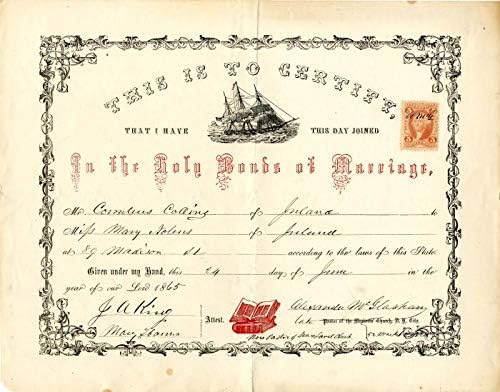 THIS IS TO CERTIFY,
THAT I HAVE THIS DAY JOINED
In the Holy Bonds of Marriage,
Mr. Cornelius Collins of Inland to
Miss Mary Nolens of Inland
at 59 Madison St according to the laws of this State.
Given under my Hand, this 24 day of June in the
year of our Lord 1865
J A King
Mary
Attest.
Alexander McGlashan
late Pastor of the Mariners Church, N. Y. City.